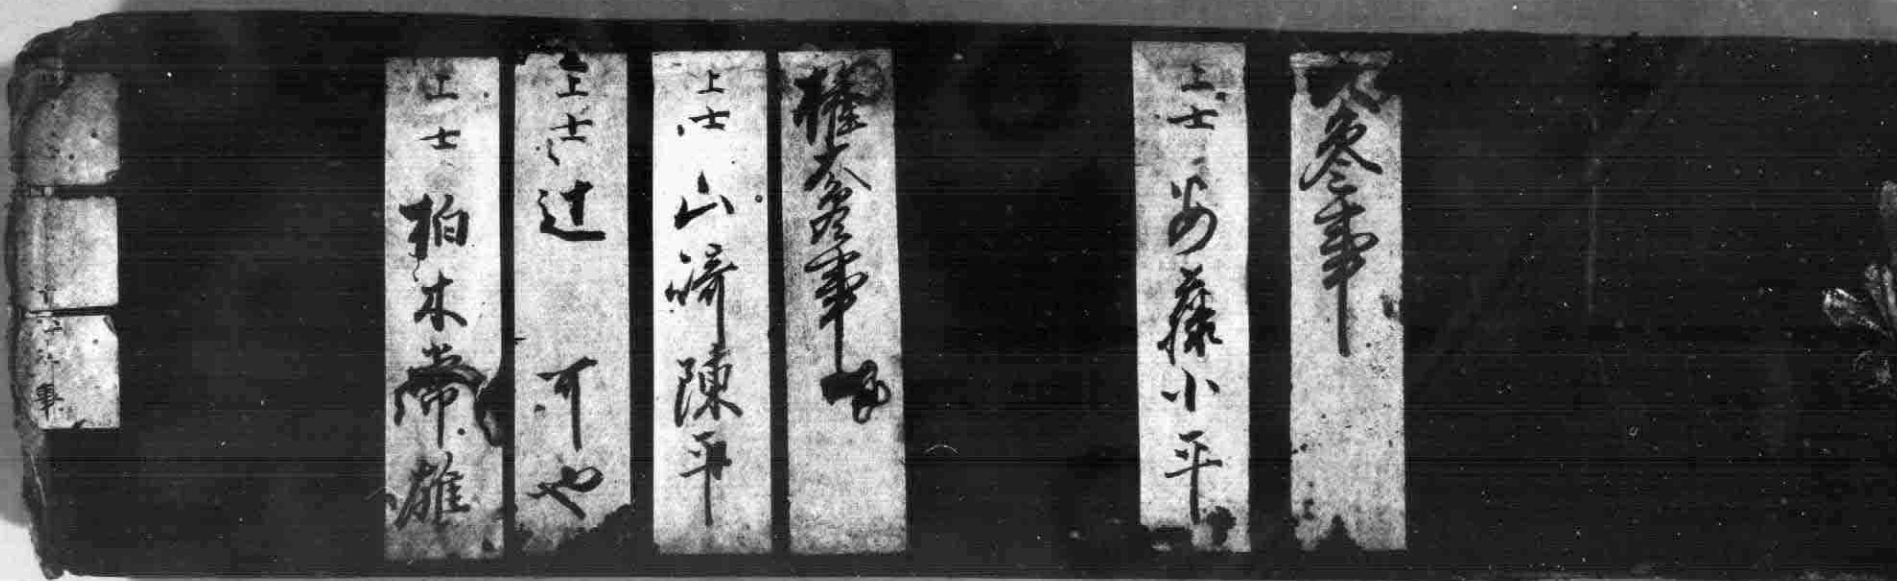 大参事
上士 安藤小平
権大参事
上士 山崎陳平
上士 辻 可也
上士 柏木常雄